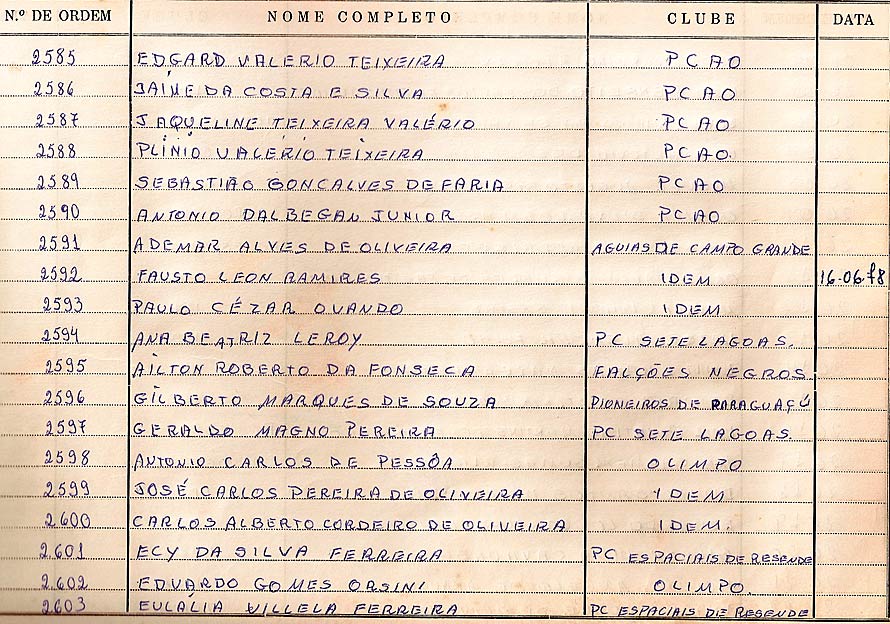 N.º DE ORDEM NOME COMPLETO CLUBE DATA
2585 EDGARD VALERIO TEIXEIRA PCAO
2586 JAIME DA COSTA E SILVA PCAO
2587 JAQUELINE TEIXEIRA VALÉRIO PCAO
2588 PLÍNIO VALÉRIO TEIXEIRA PCAO.
2589 SEBASTIÃO GONCALVES DE FARIA PCAO
2590 ANTONIO DALBEGAN JUNIOR PCAO
2591 ADEMAR ALVES DE OLIVEIRA AGUIAS DE CAMPO GRANDE
2592 FAUSTO LEON RAMIRES IDEM 16-06-78
2593 PAULO CÉZAR OVANDO IDEM
2594 ANA BEATRIZ LEROY PC SETE LAGOAS.
2595 AILTON ROBERTO DA FONSECA FALÇÕES NEGROS
2596 GILBERTO MARQUES DE SOUZA PIONEIROS DE PARAGUAÇÚ
2597 GERALDO MAGNO PEREIRA PC SETE LAGOAS.
2598 ANTONIO CARLOS DE PESSÔA OLIMPO
2599 JOSÉ CARLOS PEREIRA DE OLIVEIRA IDEM
2600 CARLOS ALBERTO CORDEIRO DE OLIVEIRA IDEM.
2601 ECY DA SILVA FERREIRA PC ESPACIAIS DE RESENDE
2602 EDUARDO GOMES ORSINI OLIMPO.
2603 EULÁLIA VILLELA FERREIRA PC ESPACIAIS DE RESENDE